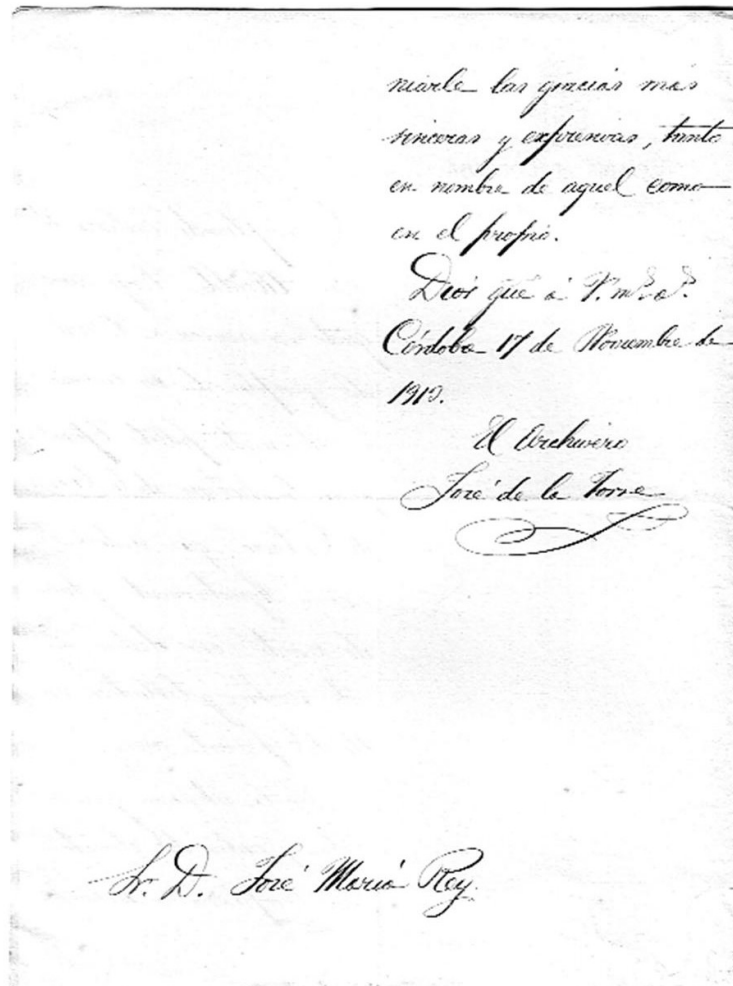 niarle las gracias más
sinceras y expresivas, tanto
en nombre de aquel como
en el propio.
Dios gue á V. mˢ aˢ.
Córdoba 17 de Noviembre de
El Archivero
José de la Torre
Sr. D. José María Rey.